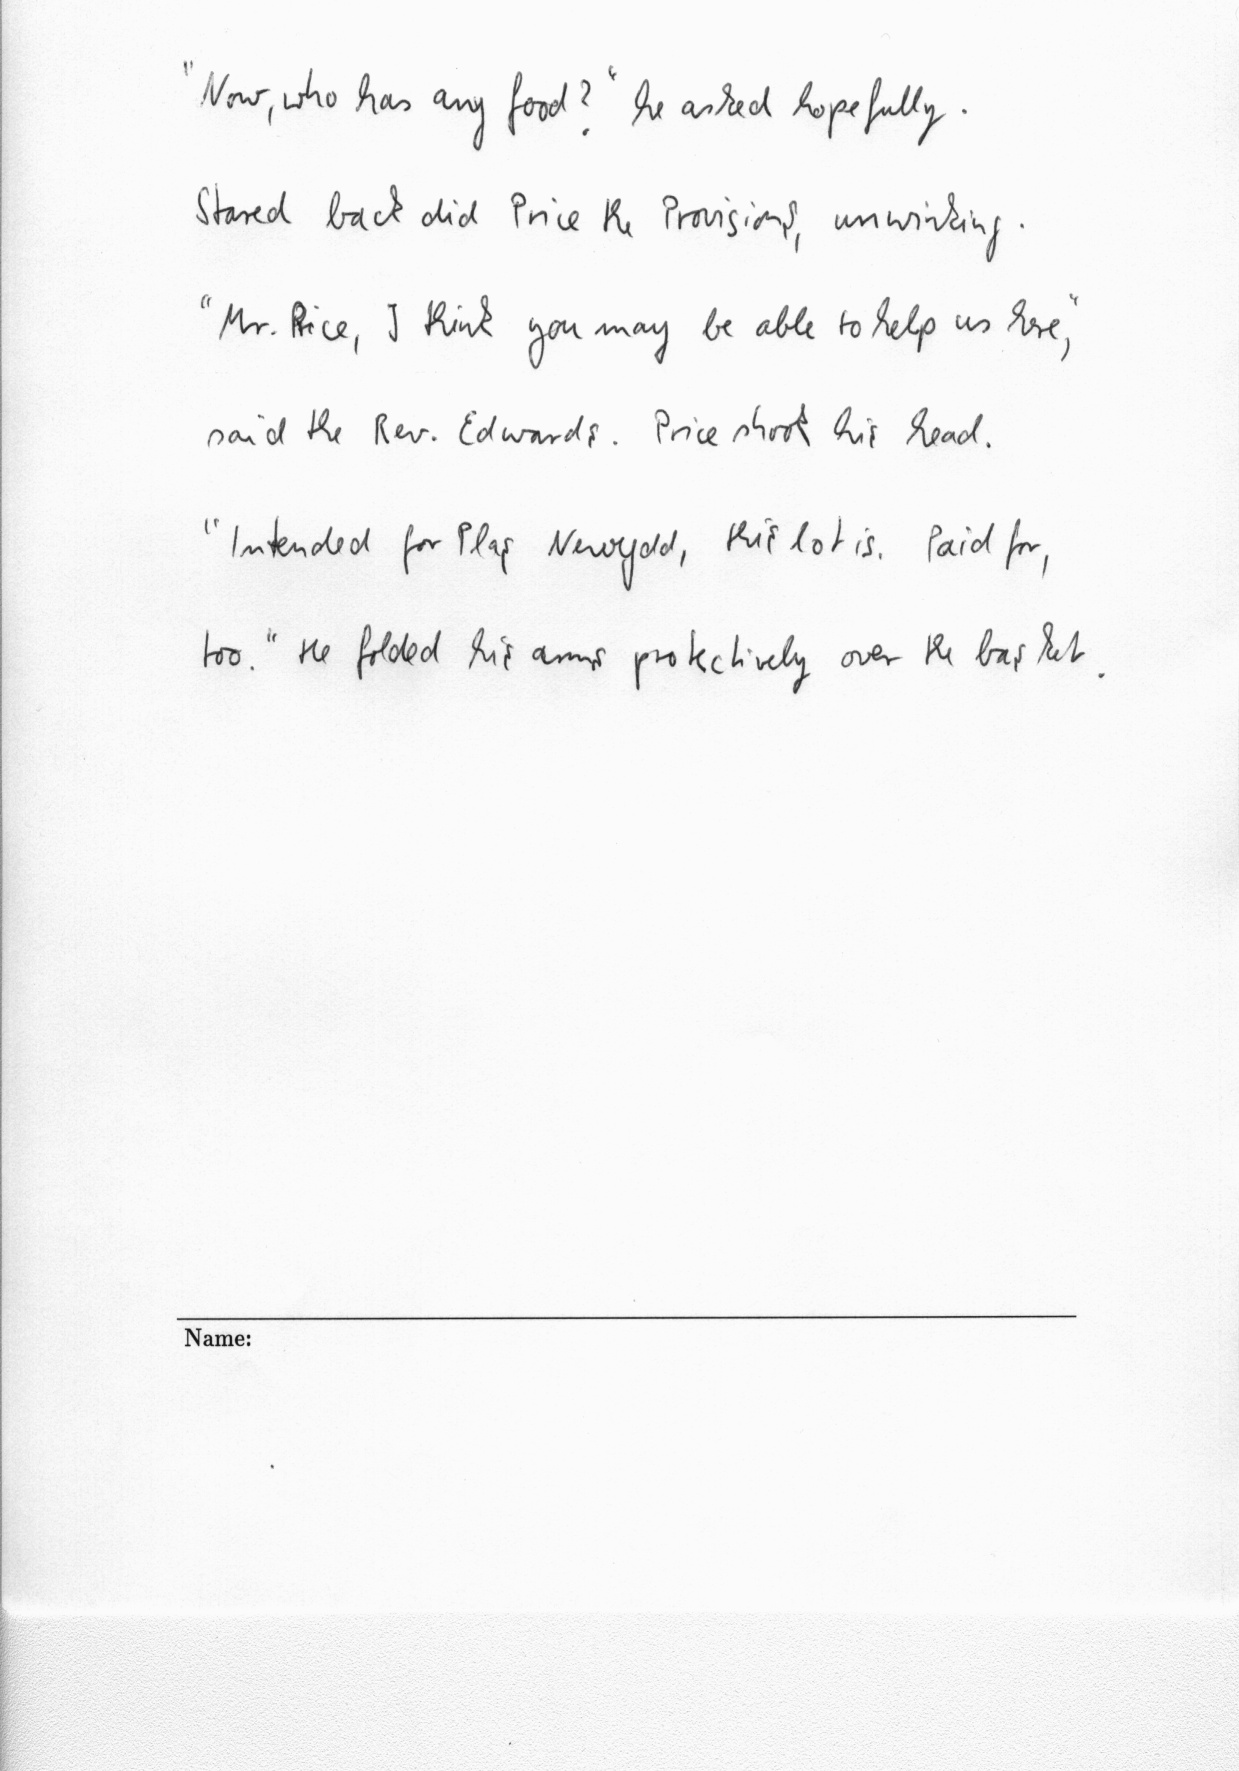 "Now, who has any food?" he asked hopefully.
Stared back did Price the Provisions, unwinking.
"Mr. Price, I think you may be able to help us here,"
said the Rev. Edwards. Price shook his head.
"Intended for Plas Newydd, this lot is. Paid for,
too." He folded his arms protectively over the basket.
Name: